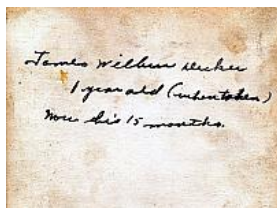 James Wilbur Decker
1 year old (when taken)
Now his 15 months.